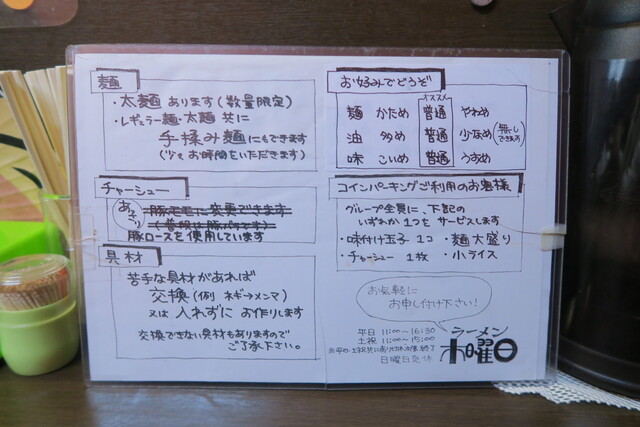 麺
・太麺 あります(数量限定)
・レギュラー麺・太麺 共に
手揉み麺 にもできます
(少々お時間をいただきます)
チャーシュー
あっさり
豚モモに変更できます
(普段は豚バラです)
豚ロースを使用しています
具材
苦手な具材があれば
交換(例 ネギ→メンマ)
又は 入れずに お作りします
交換できない具材もありますので
ご了承下さい。
お好みでどうぞ
オススメ
麺 かため 普通 やわめ
油 多め 普通 少なめ(無しもできます)
味 こいめ 普通 うすめ
コインパーキングご利用のお客様
グループ全員に、下記の
いずれか1つを サービスします
・味付け玉子 1コ ・麺大盛り
・チャーシュー 1枚 ・小ライス
お気軽に
お申し付け下さい!
平日 11:00〜16:30
土祝 11:00〜15:00
日曜日定休
ラーメン
木曜日